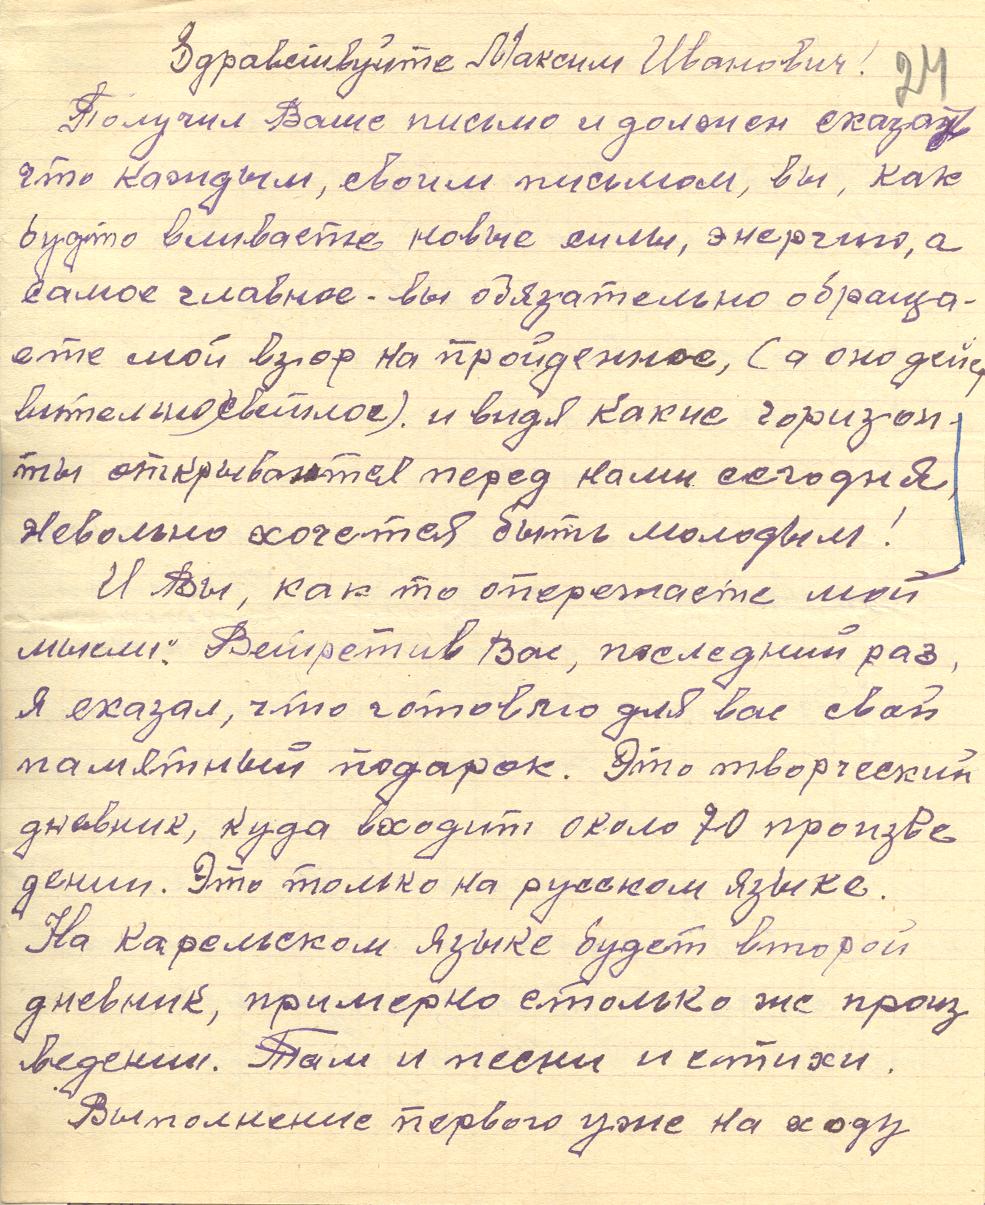 Здравствуйте Максим Иванович!
24
Получил Ваше письмо и должен сказать
что каждым, своим письмом, вы, как
будто вливаете новые силы, энергию, а
самое главное - вы обязательно обраща-
ете мой взор на пройденное, (а оно дейст
вительно светлое). и видя какие горизон-
ты открываются перед нами сегодня,
невольно хочется быть молодым!
И Вы, как то опережаете мои
мысли: Встретив Вас, последний раз,
я сказал, что готовлю для вас свой
памятный подарок. Это творческий
дневник, куда входит около 70 произве
дении. Это только на русском языке.
На карельском языке будет второй
дневник, примерно столько же произ
ведении. Там и песни и стихи.
Выполнение первого уже на ходу